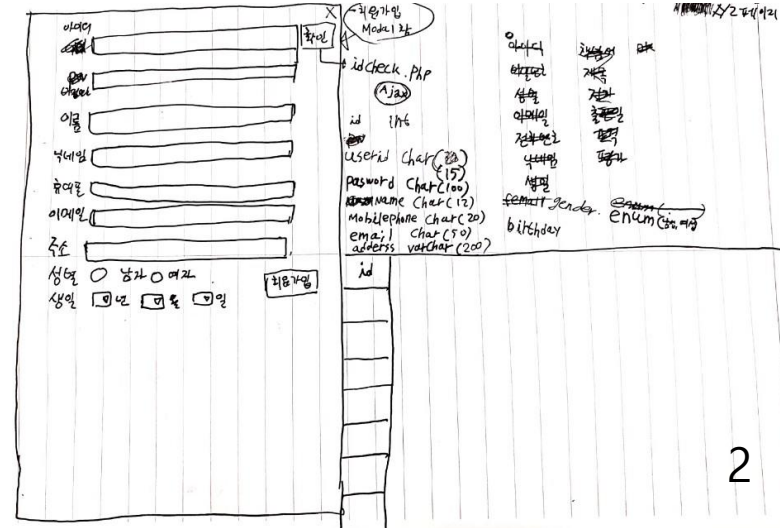 아이디
확인
비밀번호
이름
닉네임
휴대폰
이메일
주소
성별 남자 여자
생일 년 월 일
회원가입
X
회원가입
Modal 창
idcheck.php
Ajax
id int
userid char(15)
password char(100)
Name char(12)
Mobilephone char(20)
email char(50)
adderss varchar(200)
id
아이디
성별
이메일
전화번호
닉네임
제목
출판일
평가
gender.
enum(남, 여성)
birthday
2페이지
2